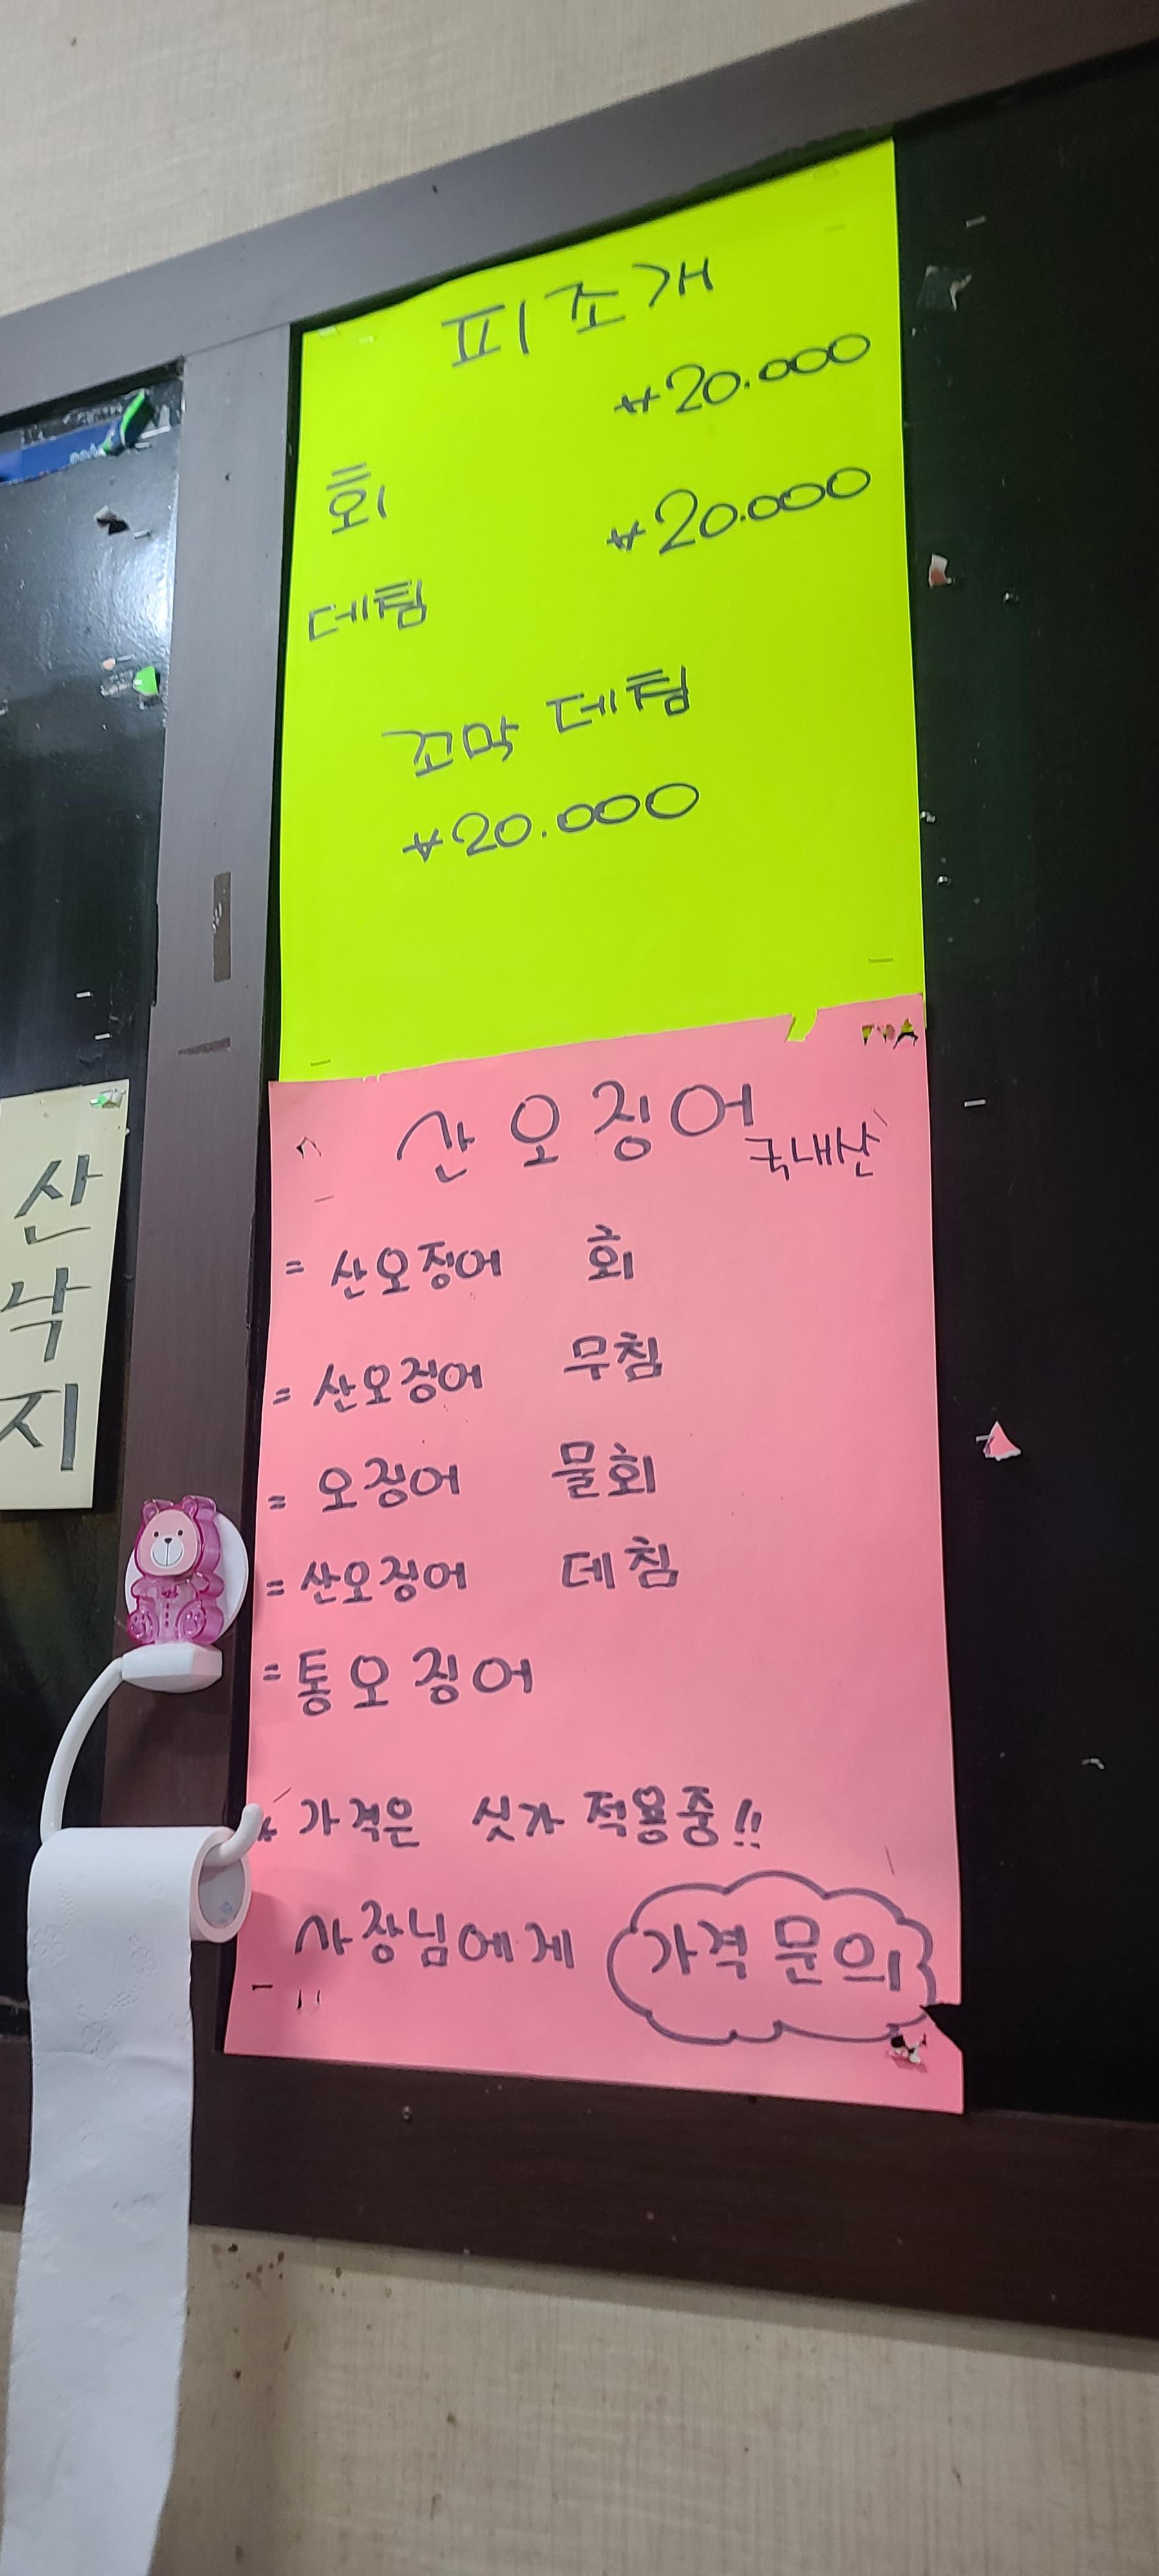 피조개
₩20.000
회
₩20.000
데침
꼬막 데침
₩20.000
산오징어
국내산
= 산오징어 회
= 산오징어 무침
= 오징어 물회
= 산오징어 데침
= 통오징어
가격은 싯가 적용중!!
사장님에게 가격 문의
산
낙
지